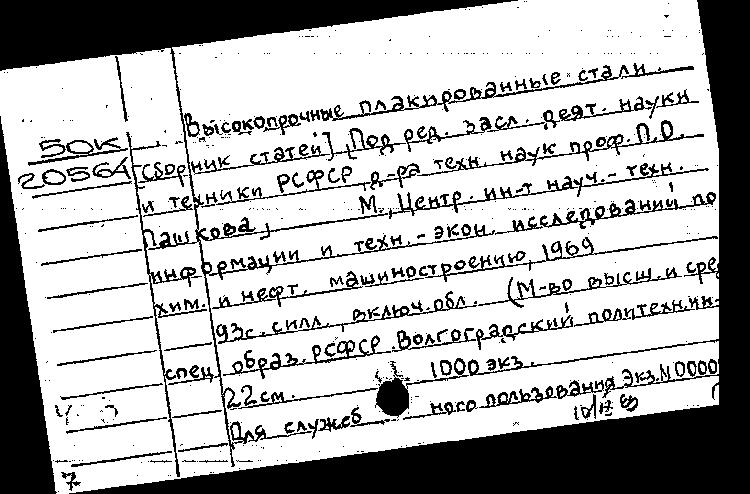 Высокопрочные плакированные стали.
50К
20564 [Сборник статей] [Под ред. засл. деят. науки
и техники РСФСР д-ра техн. наук проф. П.О.
Пашкова] М., Центр. ин-т науч.-техн.
информации и техн.-экон. исследований по
хим. и нефт. машиностроению, 1969
93с. с илл., включ. обл. (М-во высш. и сре
спец. образ. РСФСР. Волгоградский политехн. ин-
22 см. 1000 экз.
Для служебного пользования Экз. N 0000
7